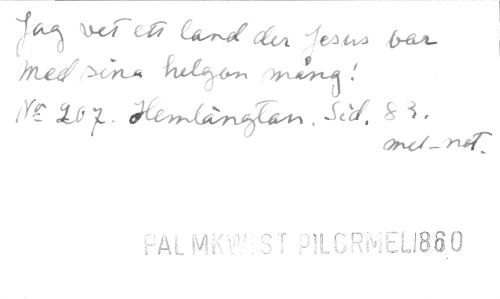 Jag vet ett land der Jesus bor
med sina helgon mång!
No 207. Hemlängtan. Sid. 83.
mel-not.
PALMKWIST PILGRMEL1860